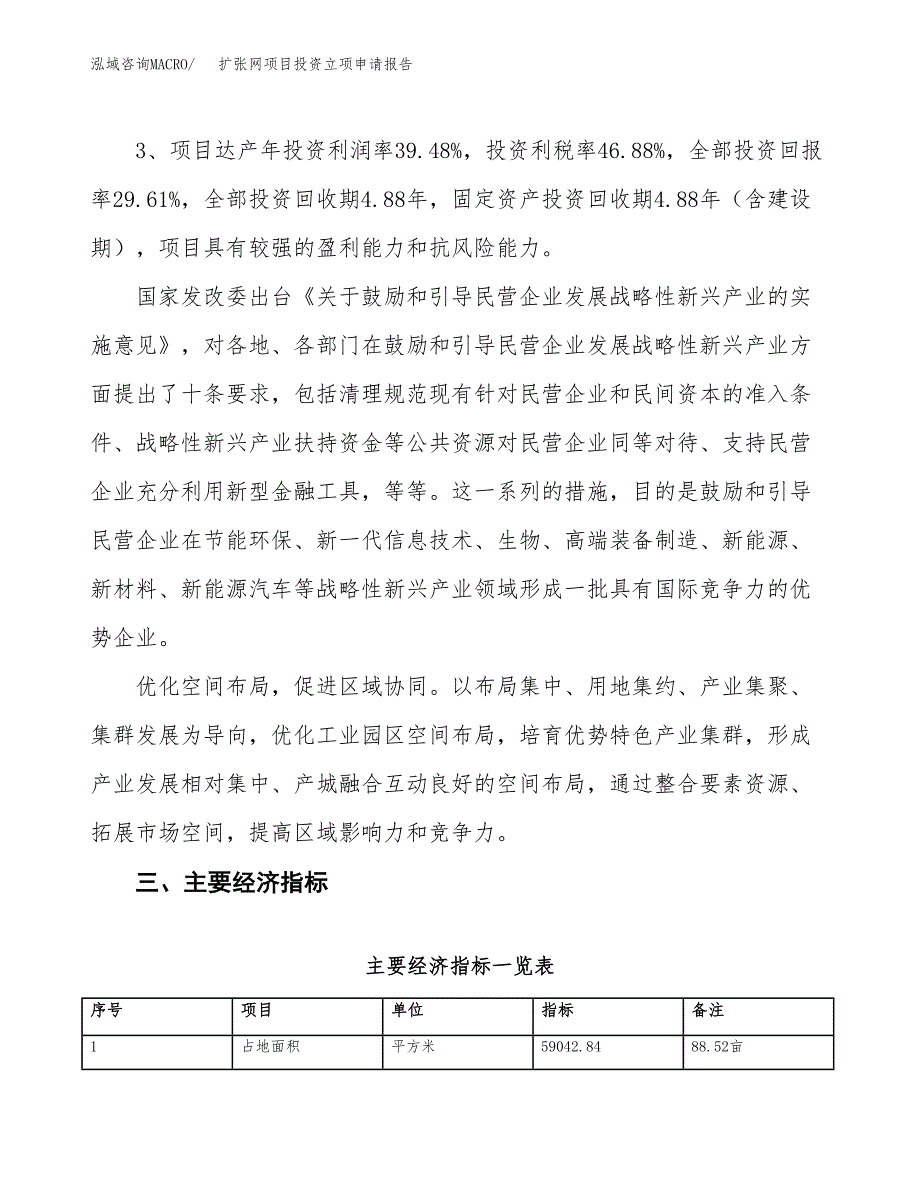 泓域咨询MACRO/ 扩张网项目投资立项申请报告
3、项目达产年投资利润率39.48%，投资利税率46.88%，全部投资回报
率29.61%，全部投资回收期4.88年，固定资产投资回收期4.88年（含建设
期），项目具有较强的盈利能力和抗风险能力。
国家发改委出台《关于鼓励和引导民营企业发展战略性新兴产业的实
施意见》，对各地、各部门在鼓励和引导民营企业发展战略性新兴产业方
面提出了十条要求，包括清理规范现有针对民营企业和民间资本的准入条
件、战略性新兴产业扶持资金等公共资源对民营企业同等对待、支持民营
企业充分利用新型金融工具，等等。这一系列的措施，目的是鼓励和引导
民营企业在节能环保、新一代信息技术、生物、高端装备制造、新能源、
新材料、新能源汽车等战略性新兴产业领域形成一批具有国际竞争力的优
势企业。
优化空间布局，促进区域协同。以布局集中、用地集约、产业集聚、
集群发展为导向，优化工业园区空间布局，培育优势特色产业集群，形成
产业发展相对集中、产城融合互动良好的空间布局，通过整合要素资源、
拓展市场空间，提高区域影响力和竞争力。
三、主要经济指标
主要经济指标一览表
序号 项目 单位 指标 备注
1 占地面积 平方米 59042.84 88.52亩